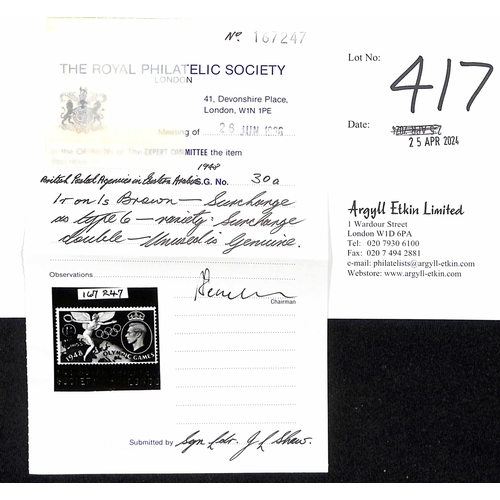 No. 167247
THE ROYAL PHILATELIC SOCIETY
LONDON
41, Devonshire Place,
London, W1N 1PE
Meeting of 26 JUN 1996
EXPERT COMMITTEE the item
1948
British Postal Agencies in Eastern Arabia S.G. No. 30a
1r on 1s Brown – Surcharge
as type 6 – variety: Surcharge
double – Unused is Genuine.
Observations
Chairman
167 247
1948 OLYMPIC GAMES
Submitted by Sqn Ldr. J L Shaw.
Lot No: 417
Date:
25 APR 2024
Argyll Etkin Limited
1 Wardour Street
London W1D 6PA
Tel: 020 7930 6100
Fax: 020 7 494 2881
e-mail: philatelists@argyll-etkin.com
Webstore: www.argyll-etkin.com